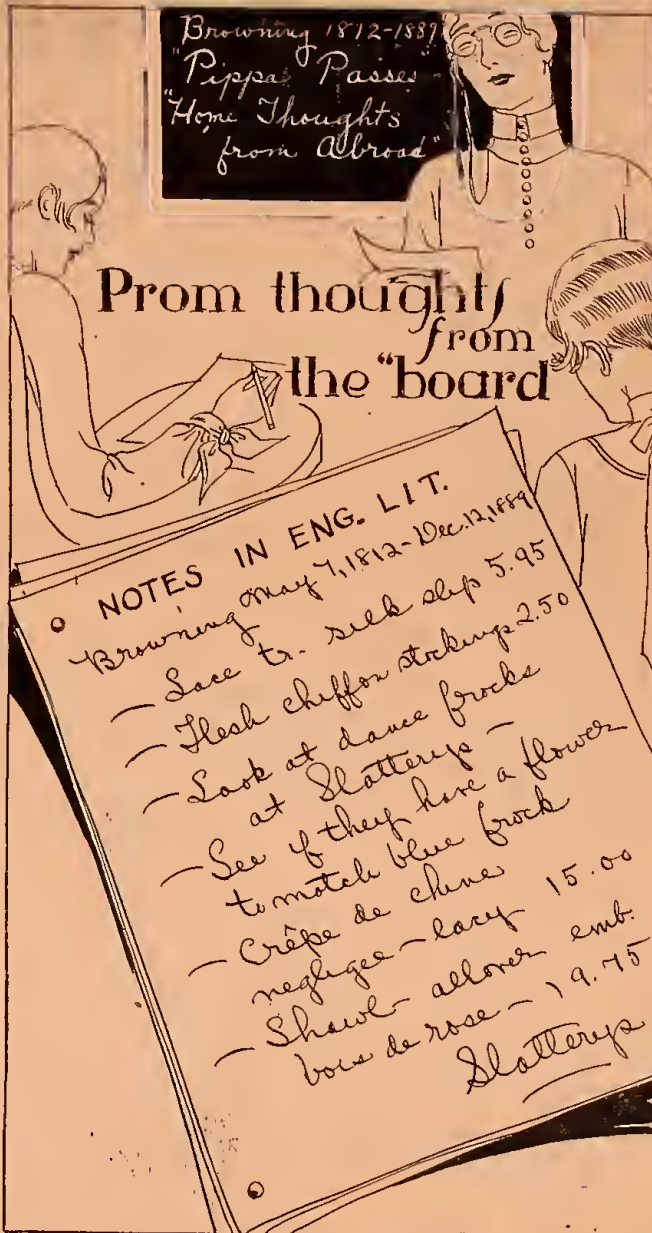 Browning 1812-1889
"Pippa Passes" -
"Home Thoughts
from Abroad"
Prom thoughts
from
the "board"
NOTES IN ENG. LIT.
Browning May 7, 1812 - Dec. 12, 1889
— Lace tr. silk slip 5.95
— Flesh chiffon stockings 2.50
— Look at dance frocks
at Slatterys —
— See if they have a flower
to match blue frock
— Crêpe de chine
negligee - lacy 15.00
— Shawl - allover emb.
bois de rose - 19.75
Slatterys